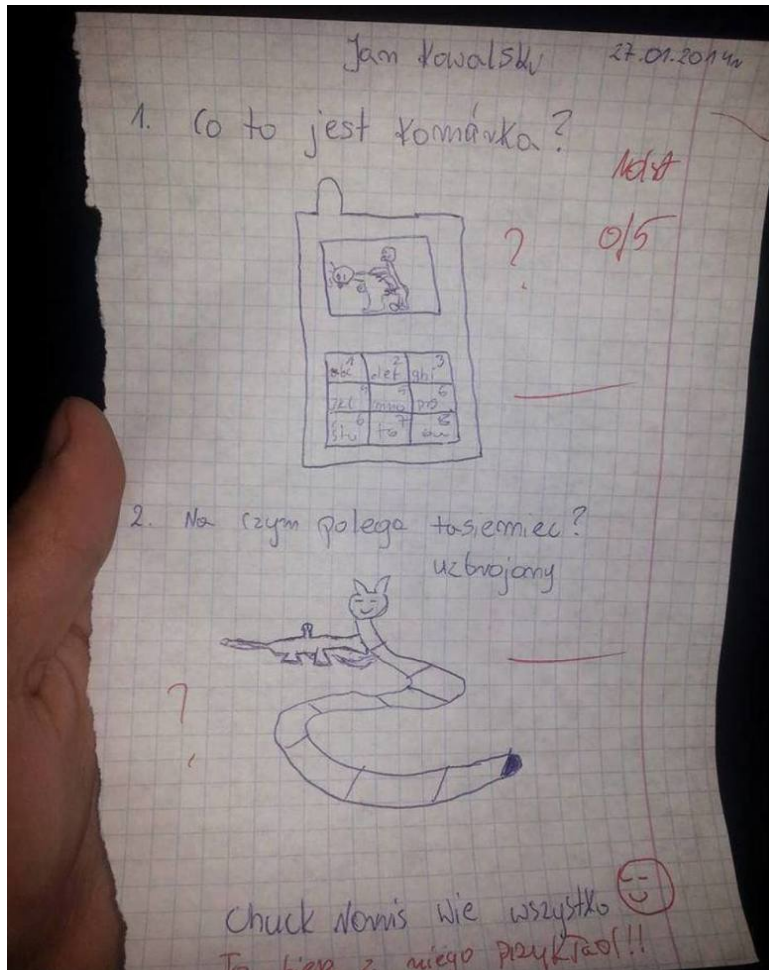 Jan Kowalski 27.01.2014r
1. Co to jest komórka?
Ndst
? 0/5
1 2 3
abc def ghi
4 5 6
jkl mno prs
6 7 8
stu
2. Na czym polega tasiemiec?
uzbrojony
?
Chuck Norris wie wszystko
To bierz z niego przykład!!